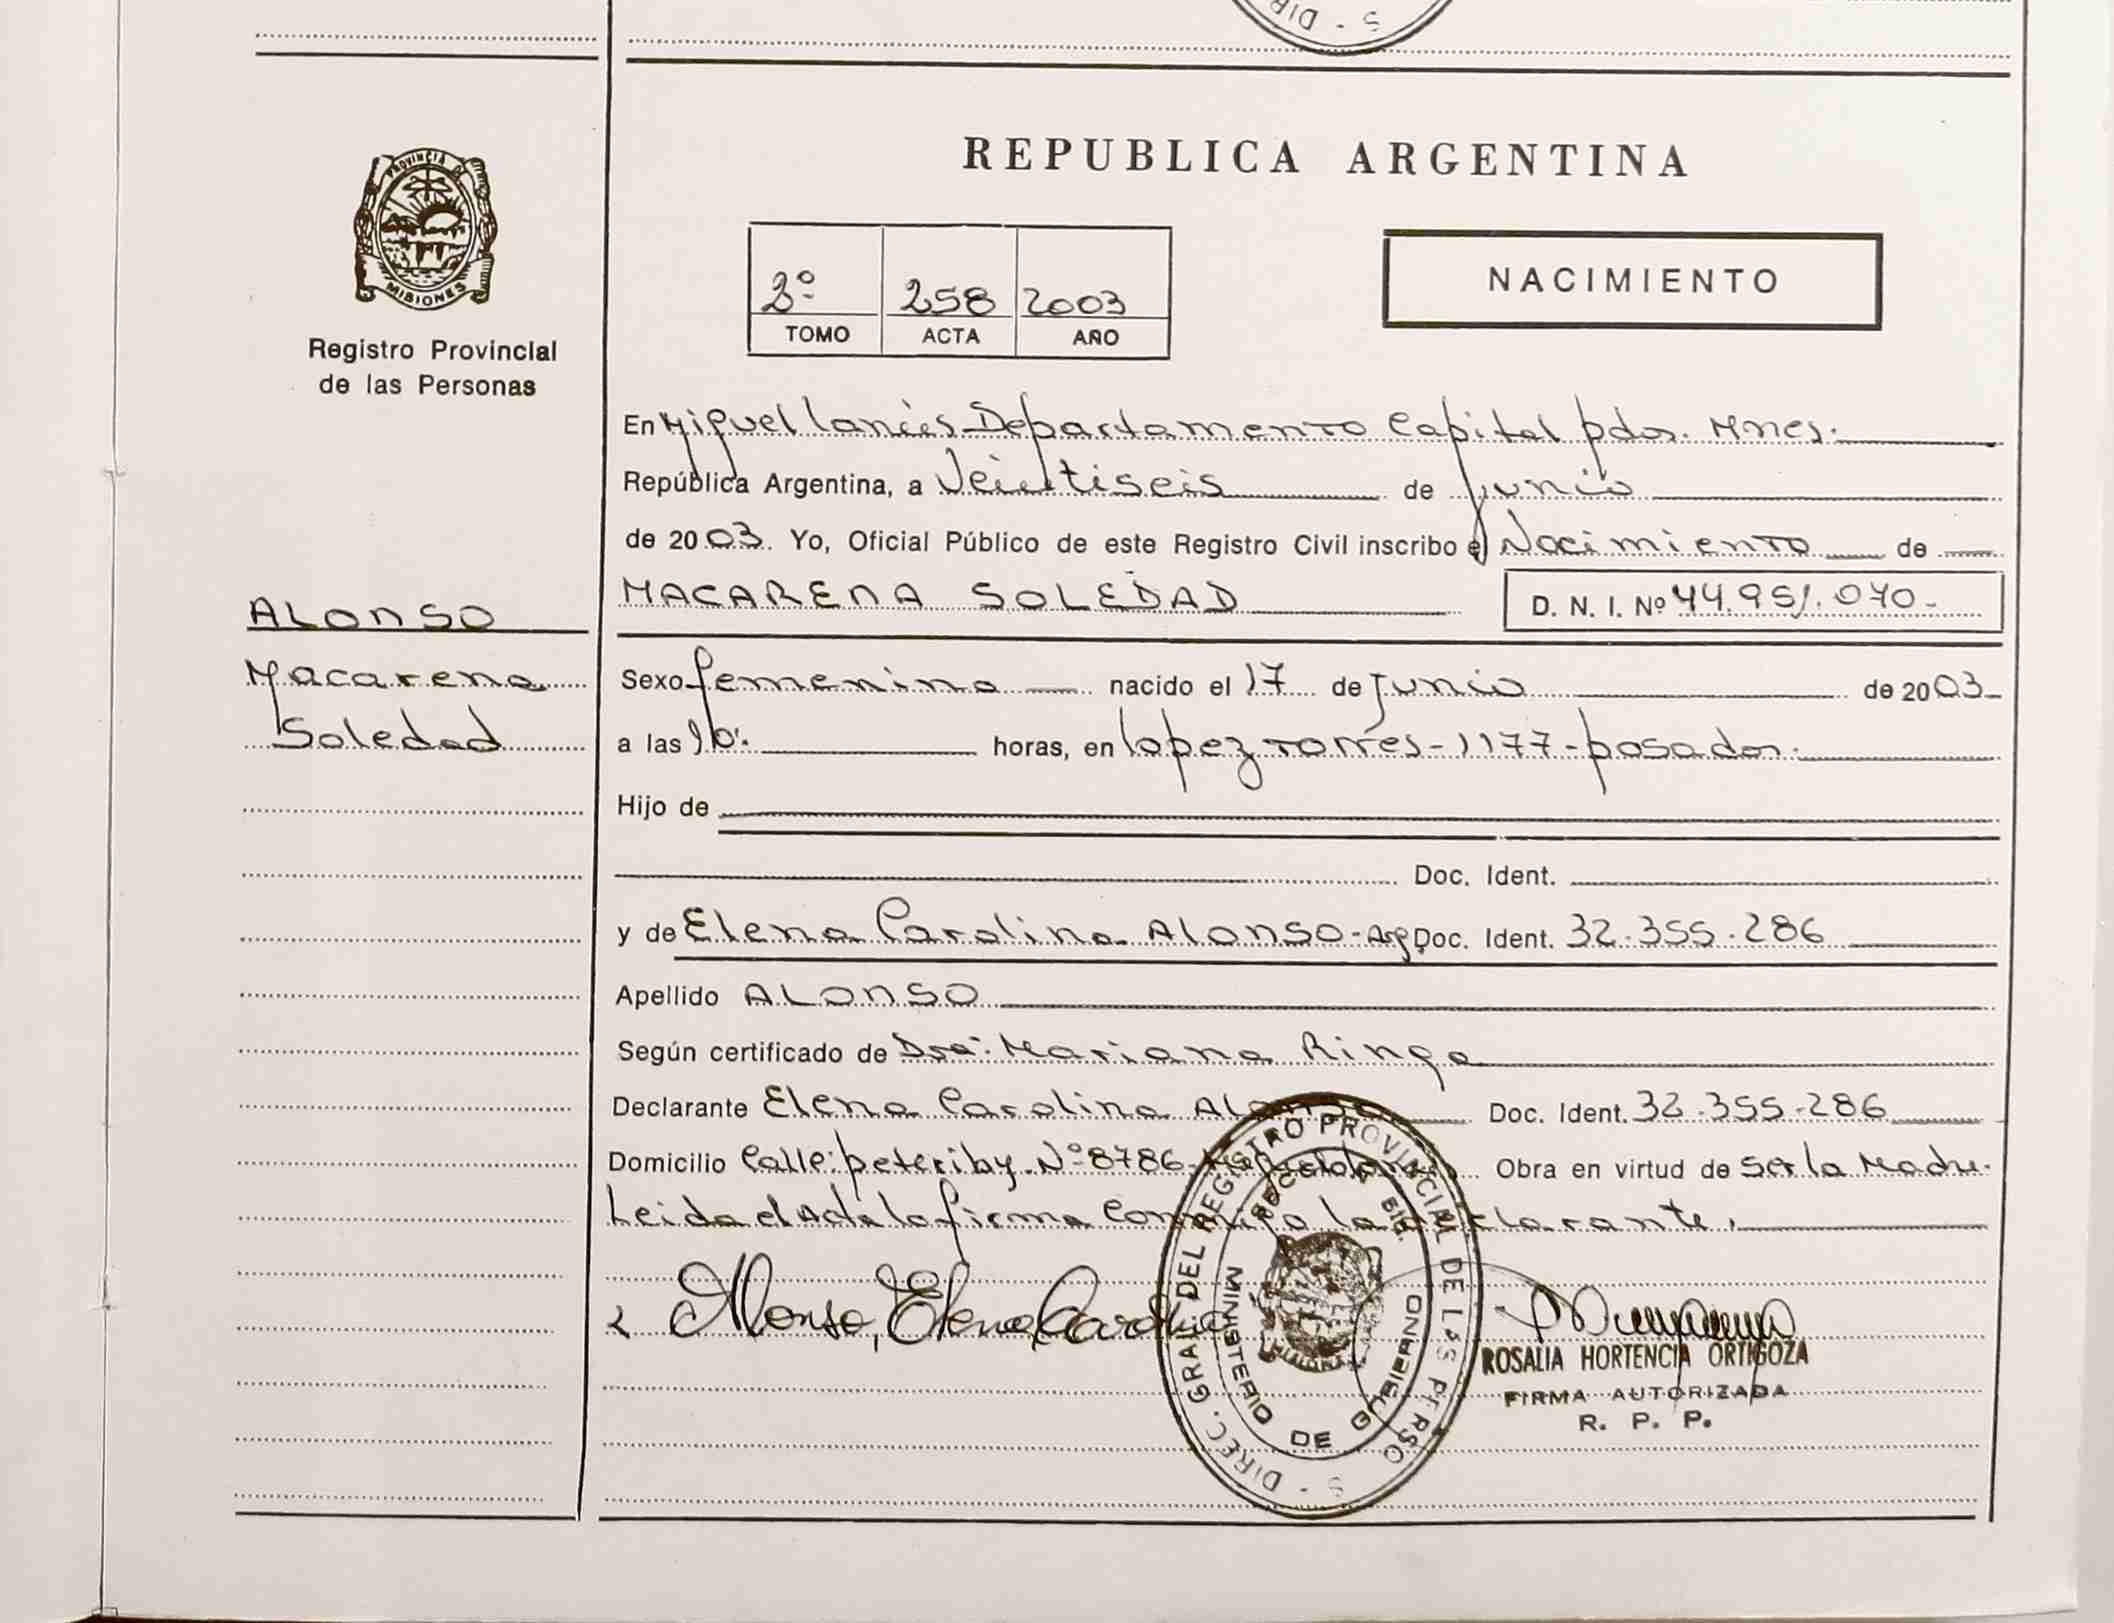 S - DIR
REPUBLICA ARGENTINA
PROVINCIA DE
MISIONES
Registro Provincial
de las Personas
2º 258 2003
TOMO ACTA AÑO
NACIMIENTO
En Miguel Lanús Departamento Capital pdas. Mnes.
República Argentina, a Veintiseis de junio
de 2003. Yo, Oficial Público de este Registro Civil inscribo el Nacimiento de
MACARENA SOLEDAD D. N. I. Nº 44.951.070-
ALONSO
Macarena
Soledad
Sexo femenino nacido el 17 de Junio de 2003
a las horas, en Lopez Torres - 1177 - posadas.
Hijo de
Doc. Ident.
y de Elena Carolina Alonso - Arg Doc. Ident. 32.355.286
Apellido ALONSO
Según certificado de Dra: Mariana Ringa
Declarante Elena Carolina Alonso Doc. Ident. 32.355.286
Domicilio Calle: Nº 8786- Obra en virtud de ser la Madre.
Leida el Acta la firma conmigo la declarante.
Alonso, Elena Carolina
DIREC. GRAL. DEL REGISTRO PROVINCIAL DE LAS PERSO S -
MINISTERIO DE GOBIERNO
ROSALIA HORTENCIA ORTIGOZA
FIRMA AUTORIZADA
R. P. P.